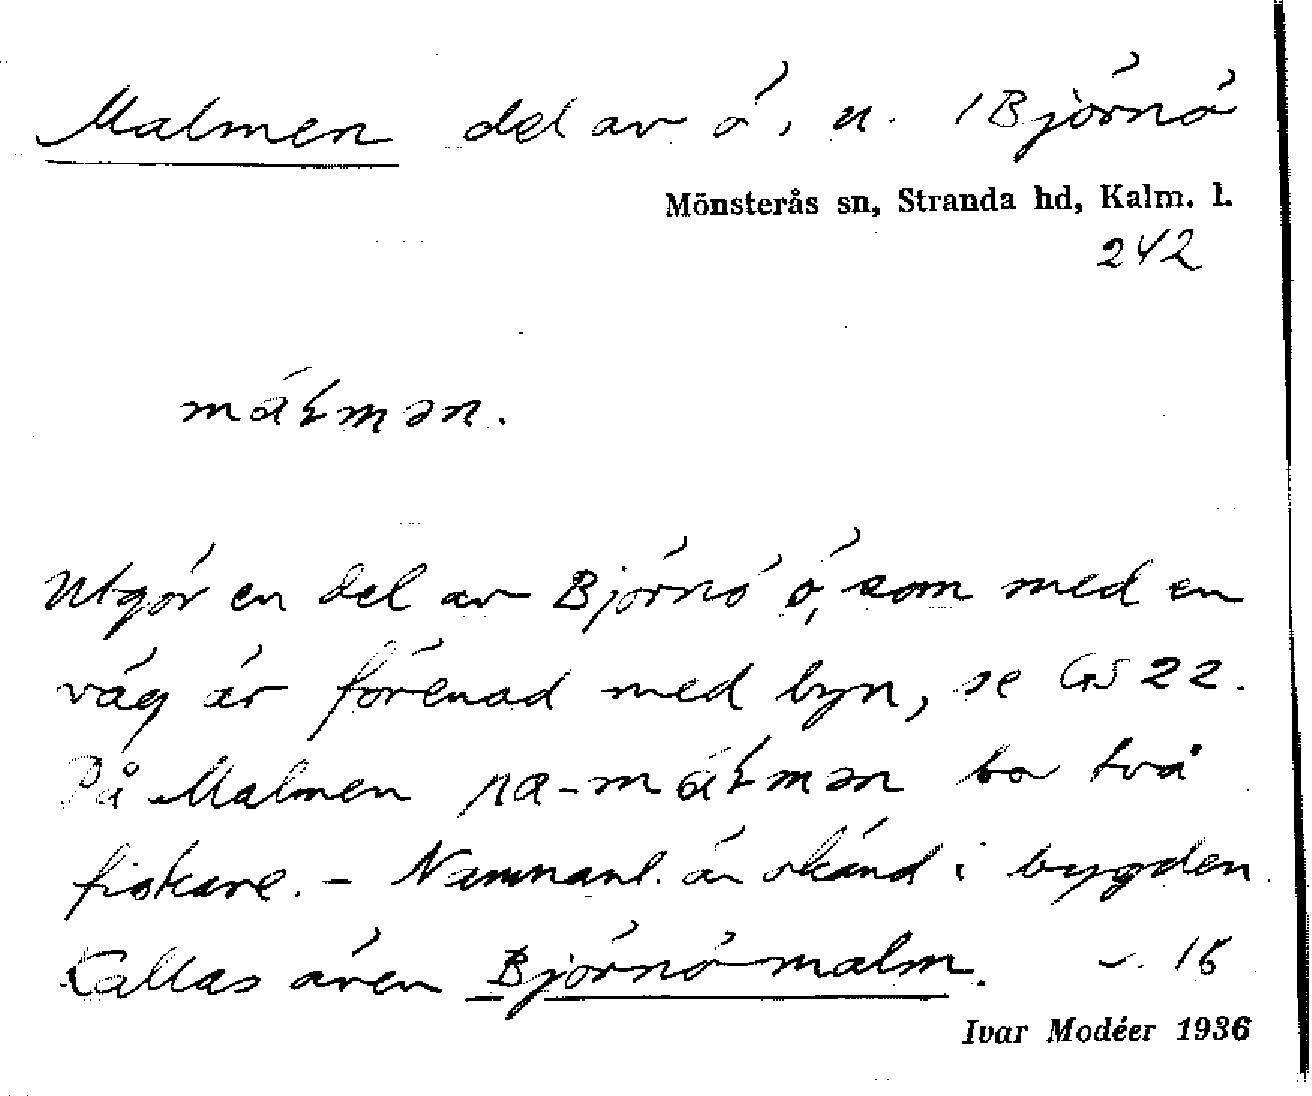 Malmen del av ö, u. /Björnö
Mönsterås sn, Stranda hd, Kalm. l.
242
máłmən.
Utgör en del av Björnö ö, som med en
väg är förenad med byn, se GS 22.
På Malmen pa-máłmən bo två
fiskare. - Namnanl. är okänd i bygden
Kallas även Björnömalm. 15
Ivar Modéer 1936